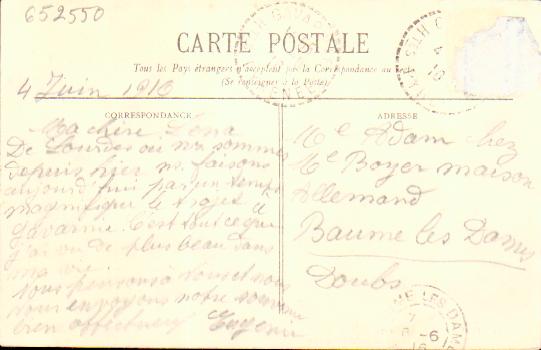 652550
CARTE POSTALE
Tous les Pays étrangers n'acceptent pas la Correspondance au recto
(Se renseigner à la Poste)
4 Juin 1910
CORRESPONDANCE
Ma chère Léna
De Lourdes ou ns sommes
depuis hier ns faisons
aujourd'hui par un temps
magnifique le trajet à
Gavarnie. C'est tout ce que
j'ai vu de plus beau dans
ma vie.
nous pensons à vous et nous
vous envoyons notre souvenir
bien affectueux Eugénie
ADRESSE
Me Adam chez
Me Boyer maison
Allemand
Baume les Dames
Doubs